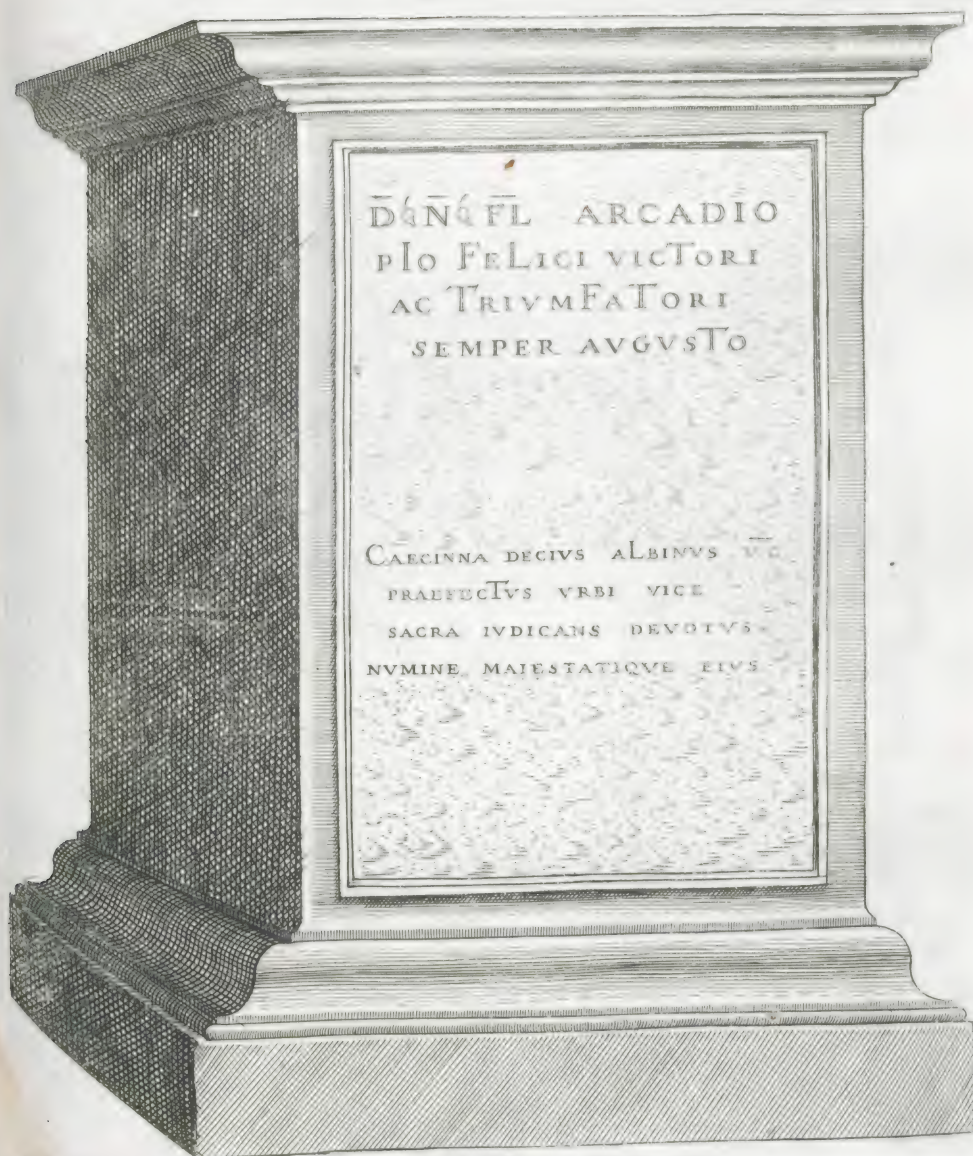 D̄ N̄ FL̄ ARCADIO
PIO FELICI VICTORI
AC TRIVMFATORI
SEMPER AVGVSTO
CAECINNA DECIVS ALBINVS V̄C̄
PRAEFECTVS VRBI VICE
SACRA IVDICANS DEVOTVS
NVMINE MAIESTATIQVE EIVS